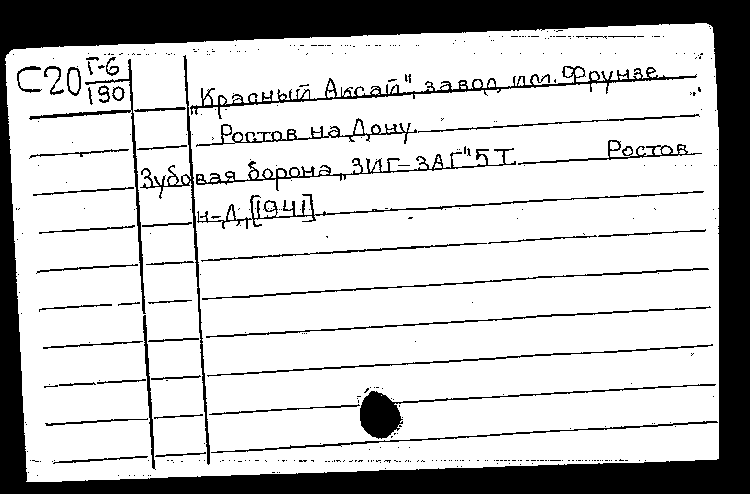 С20 Г-6
190
„Красный Аксай", завод им. Фрунзе.
Ростов на Дону.
Зубовая борона „ЗИГ-ЗАГ" 5 Т. Ростов
н-Д, [1941].